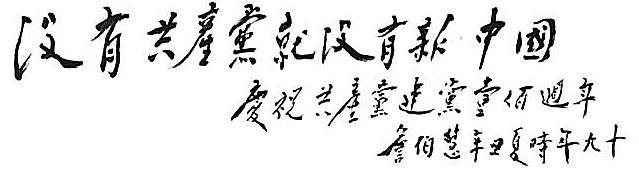 没有共產黨就没有新中國
慶祝共產黨建黨壹佰週年
詹伯慧辛丑夏時年九十